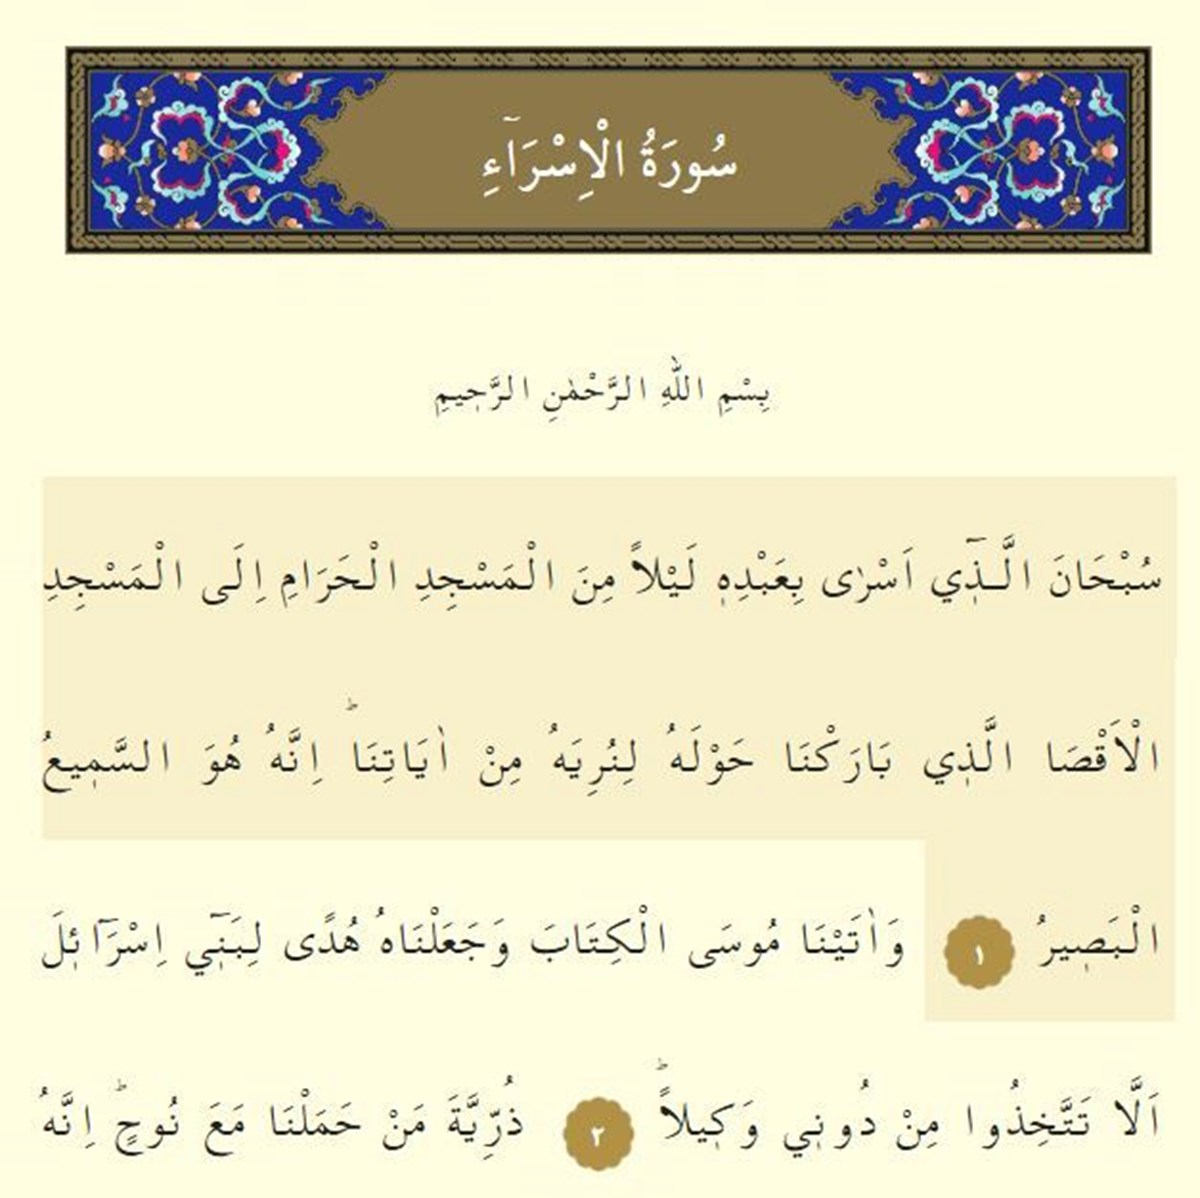 سُورَةُ الْاِسْرَٓاءِ
بِسْمِ اللّٰهِ الرَّحْمٰنِ الرَّح۪يمِ
سُبْحَانَ الَّـذ۪ٓي اَسْرٰى بِعَبْدِه۪ لَيْلاً مِنَ الْمَسْجِدِ الْحَرَامِ اِلَى الْمَسْجِدِ
الْاَقْصَا الَّذ۪ي بَارَكْنَا حَوْلَهُ لِنُرِيَهُ مِنْ اٰيَاتِنَاۜ اِنَّهُ هُوَ السَّم۪يعُ
الْبَص۪يرُ ١ وَاٰتَيْنَا مُوسَى الْكِتَابَ وَجَعَلْنَاهُ هُدًى لِبَن۪ٓي اِسْرَٓائ۪لَ
اَلَّا تَتَّخِذُوا مِنْ دُون۪ي وَك۪يلاًۜ ٢ ذُرِّيَّةَ مَنْ حَمَلْنَا مَعَ نُوحٍۜ اِنَّهُ